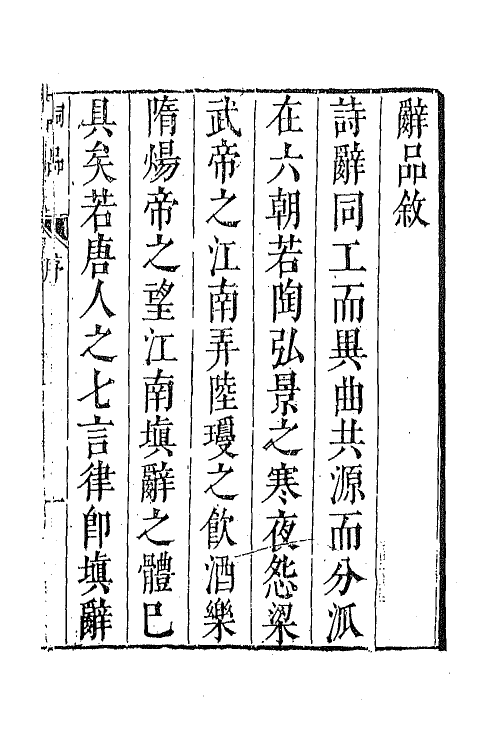 辭品敘
詩辭同工而異曲共源而分𣲖
在六朝若陶弘景之寒夜怨梁
武帝之江南弄陸瓊之飲酒樂
隋煬帝之望江南填辭之體已
具矣若唐人之七言律卽填辭
詞品 序 一